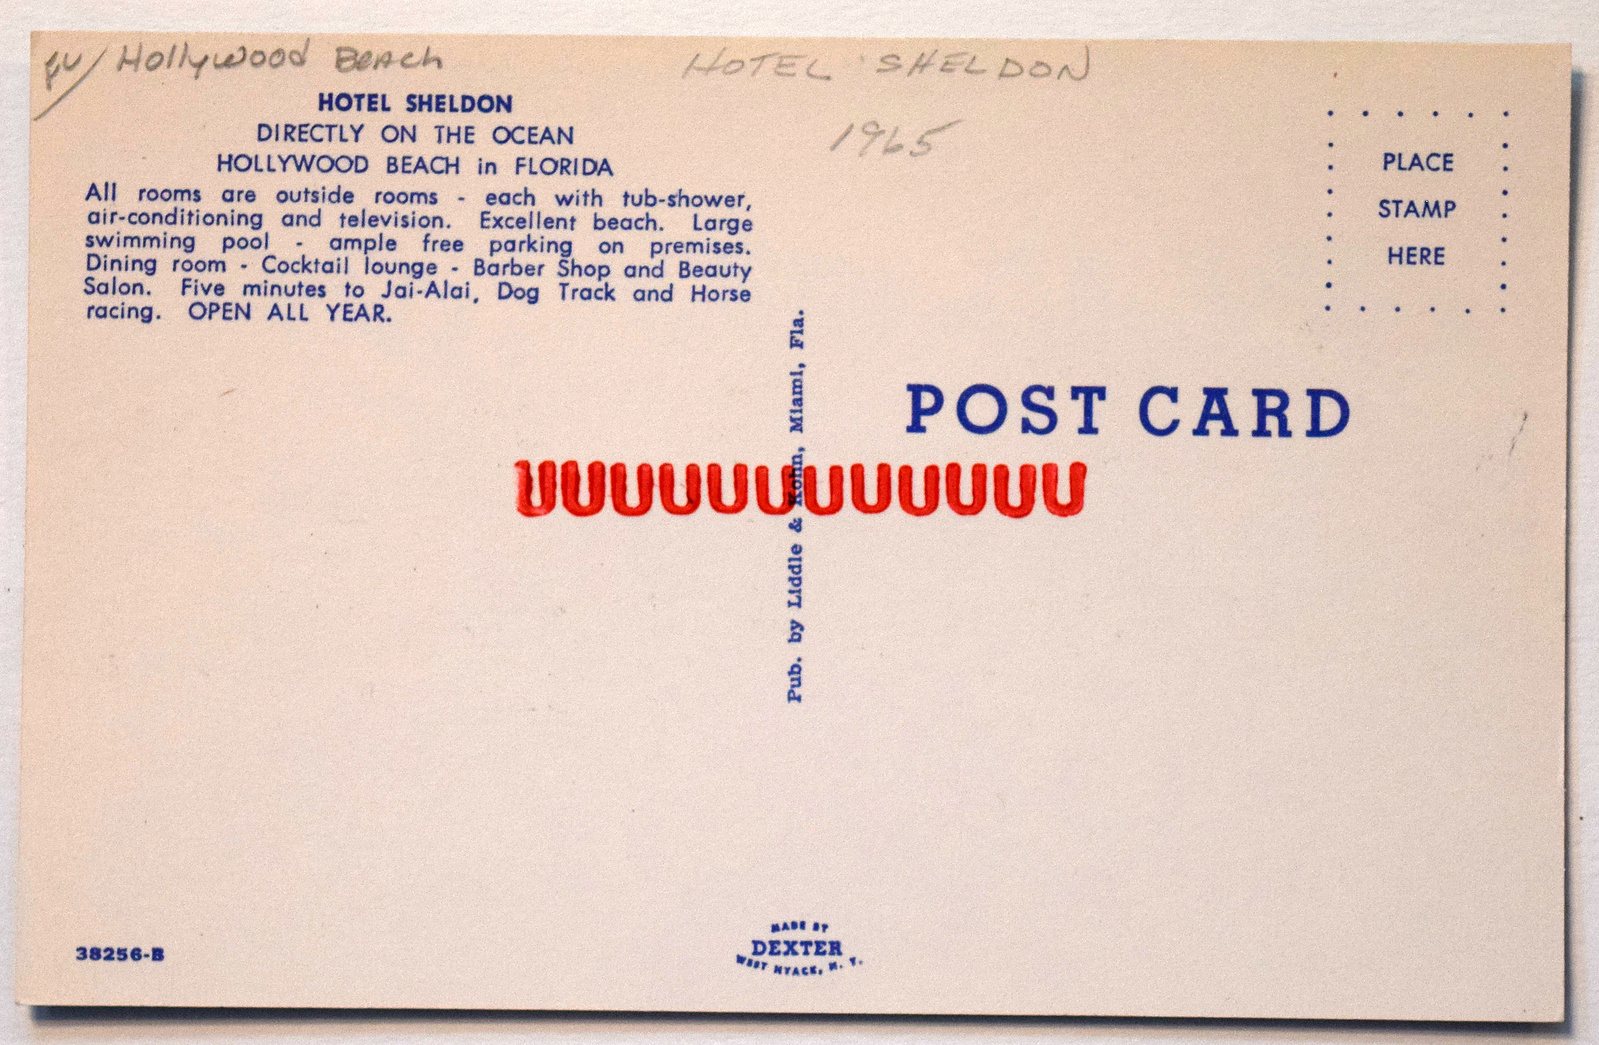 Hollywood Beach
HOTEL SHELDON
1965
HOTEL SHELDON
DIRECTLY ON THE OCEAN
HOLLYWOOD BEACH in FLORIDA
All rooms are outside rooms - each with tub-shower,
air-conditioning and television. Excellent beach. Large
swimming pool - ample free parking on premises.
Dining room - Cocktail lounge - Barber Shop and Beauty
Salon. Five minutes to Jai-Alai, Dog Track and Horse
racing. OPEN ALL YEAR.
PLACE
STAMP
HERE
POST CARD
Pub. by Liddle & Kohn, Miami, Fla.
38256-B
MADE BY
DEXTER
WEST NYACK, N. Y.